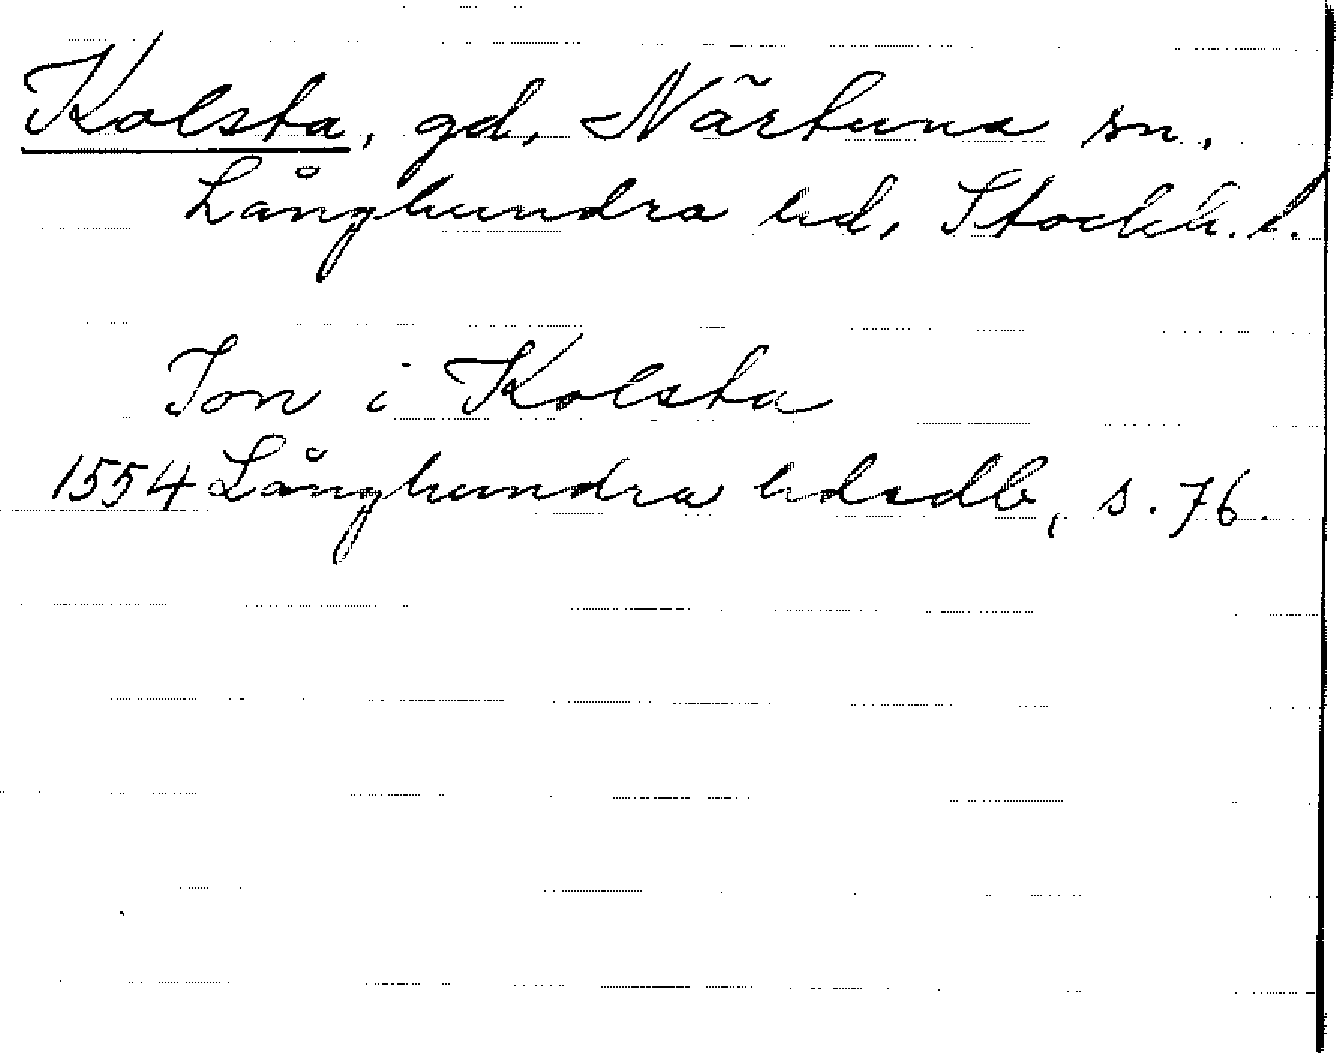 Kolsta, gd, Närtuna sn.
Långhundra hd, Stockh. l.
Jon i Kolsta
1554 Långhundra hdsdb, s. 76.